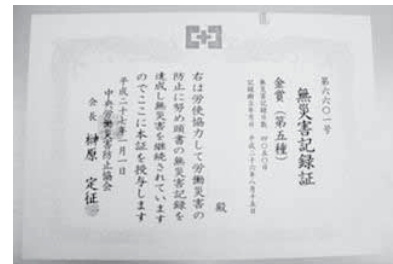 第六六〇一号
無災害記録証
金賞(第五種)
無災害記録日数 四〇五〇日
記録樹立年月日 平成二十六年八月十五日
殿
右は労使協力して労働災害の
防止に努め頭書の無災害記録を
達成し無災害を継続されています
のでここに本証を授与します
平成二十七年一月一日
中央労働災害防止協会
会長 榊原 定征